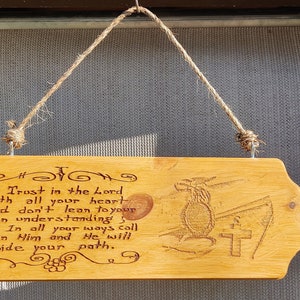 Trust in the Lord
th all your heart
d don't lean to your
n understanding
In all your ways call
n Him and He will
ide your path.